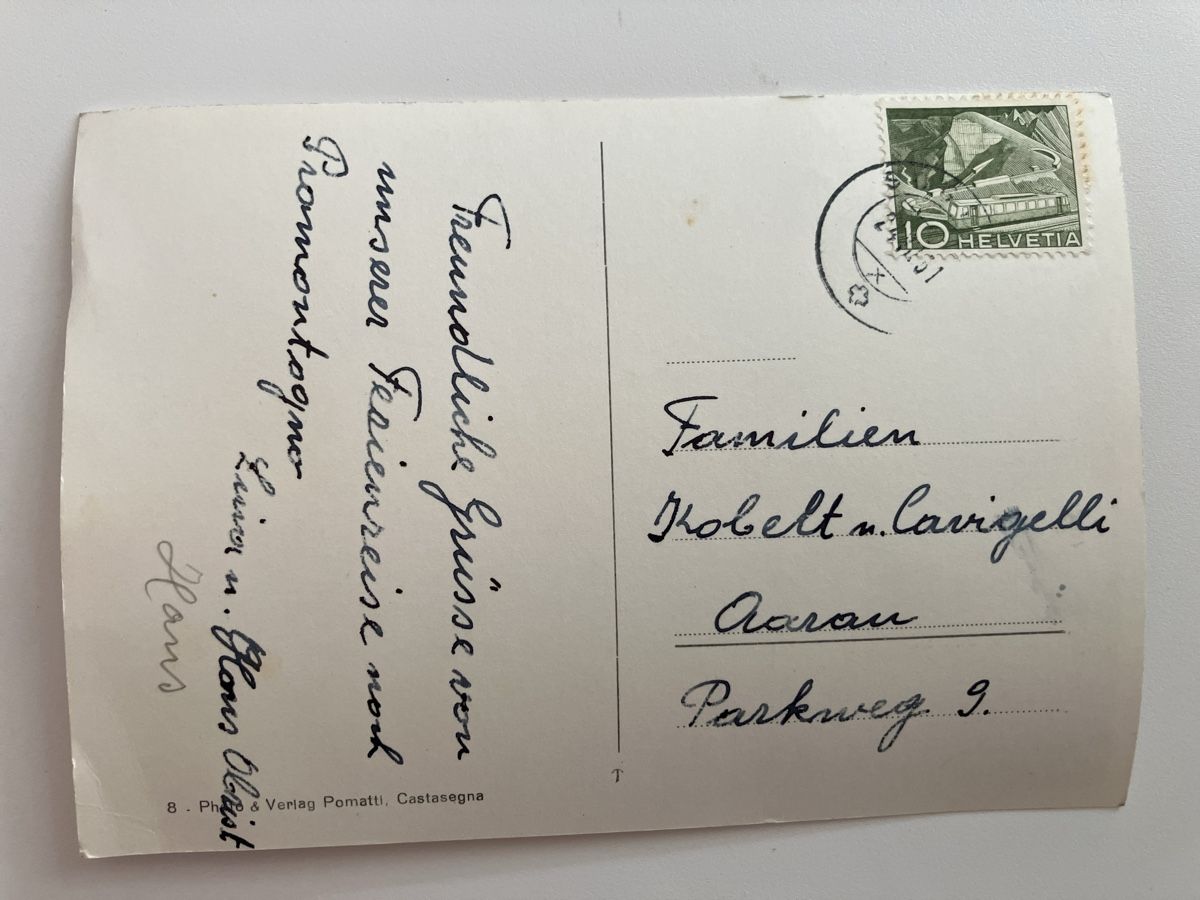 Freundliche Grüsse von
unserer Ferienreise nach
Promontogno
Luisa u. Hans Obrist
Hans
8 - Photo & Verlag Pomatti, Castasegna
10 HELVETIA
Familien
Kobelt u. Cavigelli
Aarau
Parkweg 9.